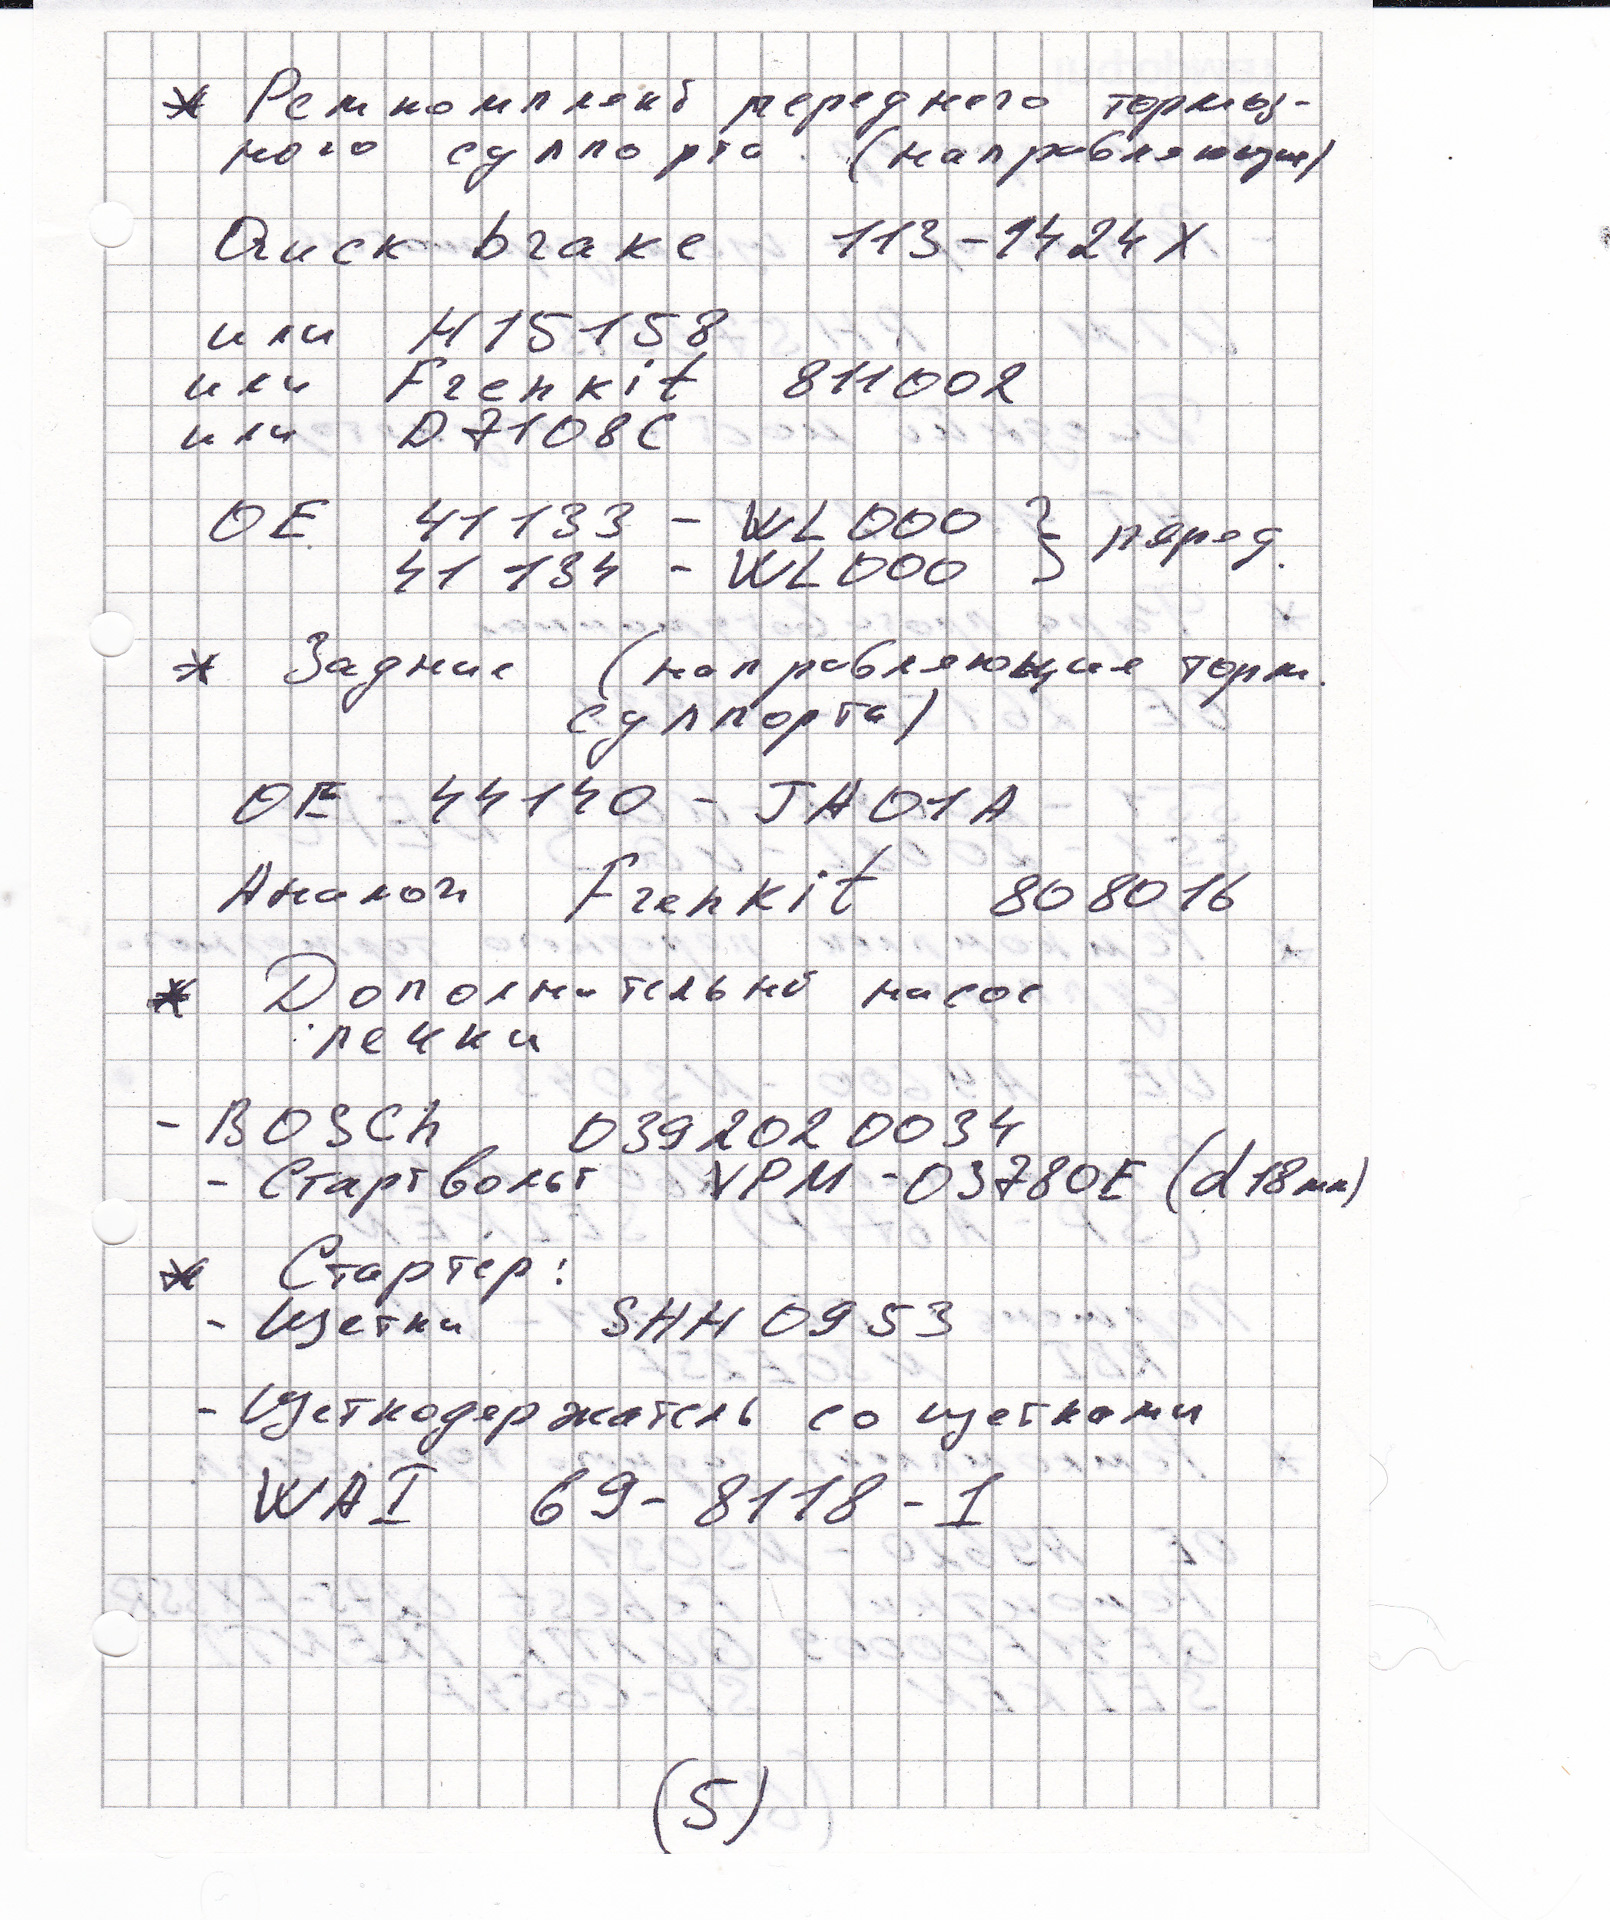 * Ремкомплект переднего тормоз-
ного суппорта (направляющие)
Quick brake 113-1424X
или H15158
или Frenkit 811002
или D7108C
OE 41133 - WL000 } перед.
41134 - WL000
* Задние (направляющие торм.
суппорта)
OE 44140 - JA01A
Аналог Frenkit 808016
* Дополнительный насос
печки
- BOSCh 0392020034
- СтартВольт VPM-03780E (d18мм)
* Стартер:
- Щетки SHH0953
- Щеткодержатель со щетками
WAI 69-8118-1
(5)